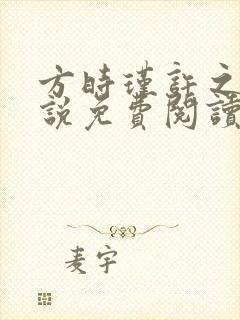 方時瑾許之
說免費閱讀
麦宇